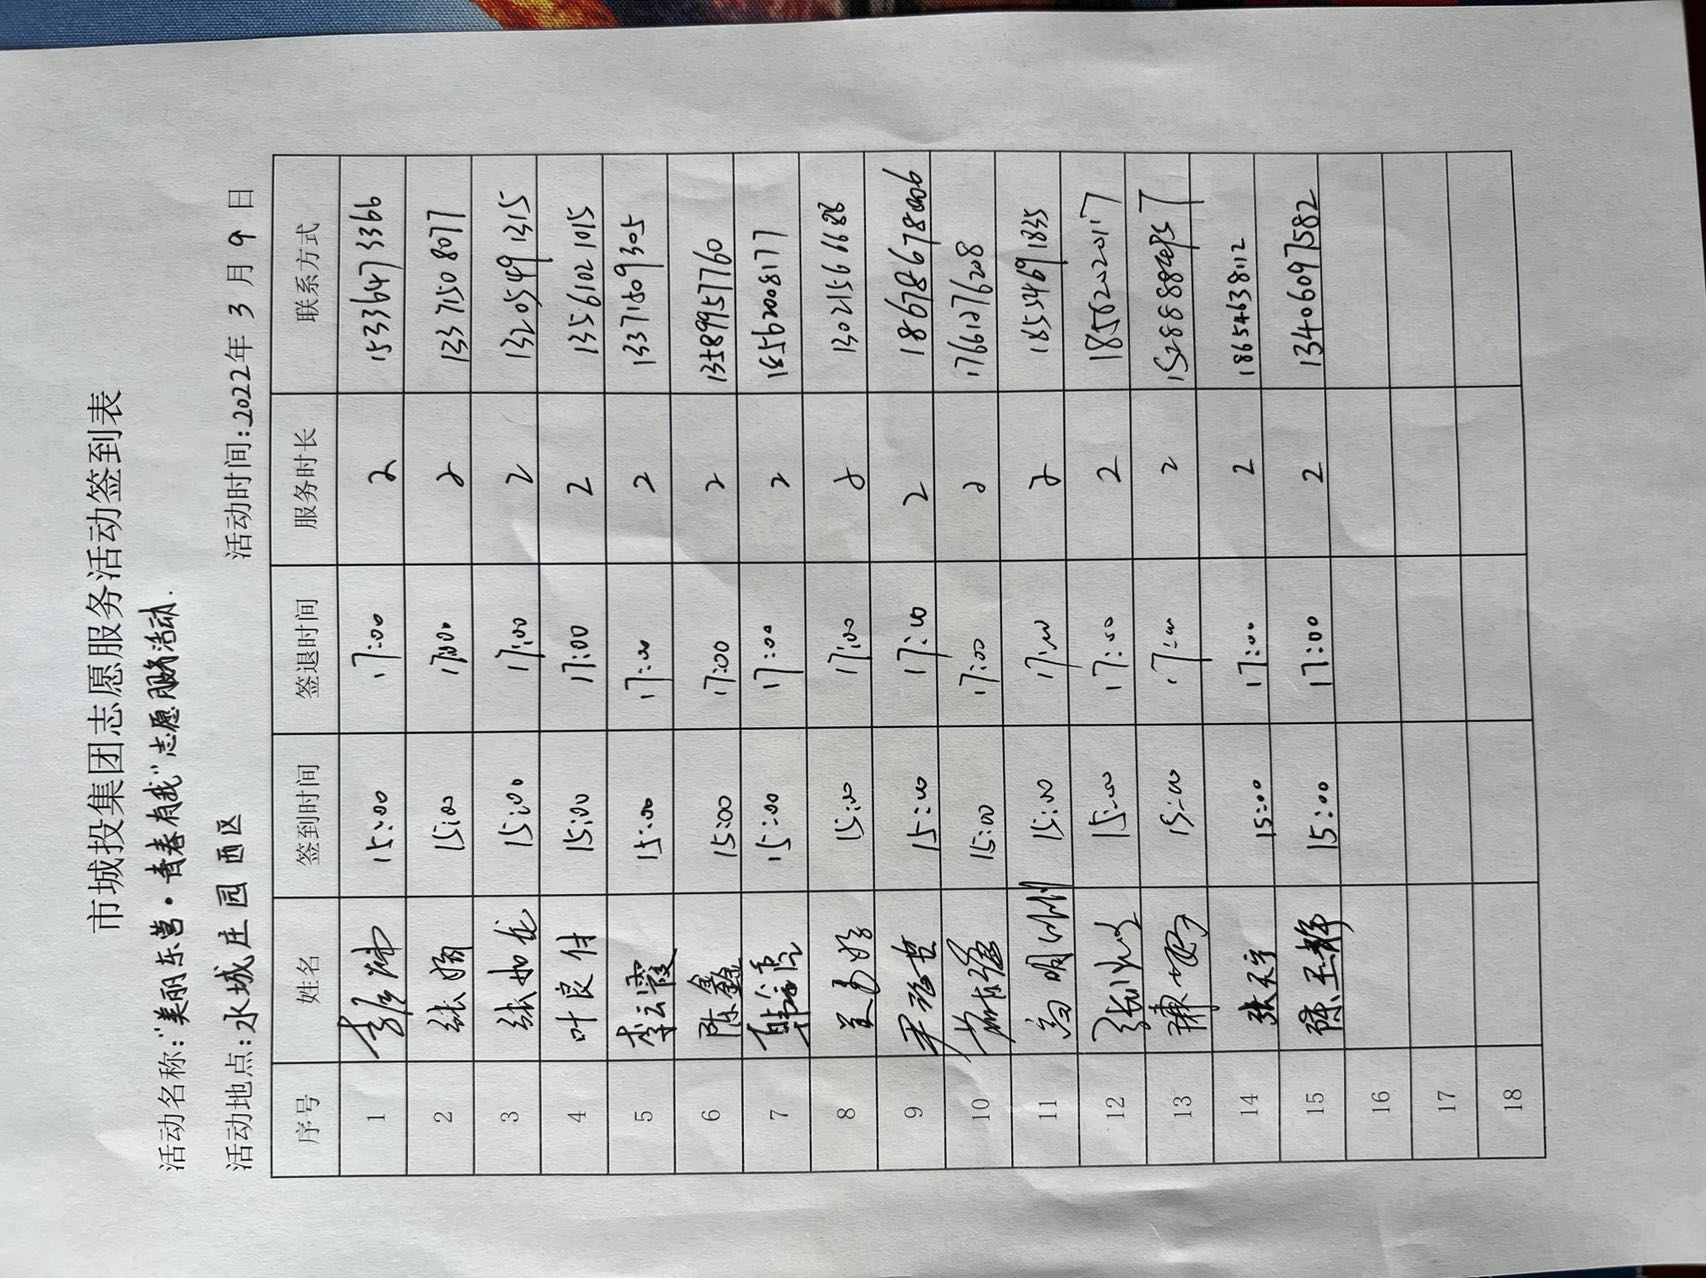 市城投集团志愿服务活动签到表
活动名称:"美丽东营·青春有我"志愿服务活动.
活动地点:水城庄园西区 活动时间:2022年3月9日
序号 姓名 签到时间 签退时间 服务时长 联系方式
1 15:00 17:00 2 15336473366
2 张娟 15:00 17:00 2 13371508077
3 张如龙 15:00 17:00 2 13205491315
4 叶良付 15:00 17:00 2 13561021015
5 李云霞 15:00 17:00 2 13371509305
6 陈鑫 15:00 17:00 2 13589957760
7 15:00 17:00 2 18562008177
8 15:00 17:00 2 13021561688
9 15:00 17:00 2
10 15:00 17:00 2 17661276208
11 15:00 17:00 2 18554691835
12 15:00 17:00 2 18562022017
13 15:00 17:00 2
14 张天宇 15:00 17:00 2 18654638112
15 陈玉静 15:00 17:00 2 13406097582
16
17
18